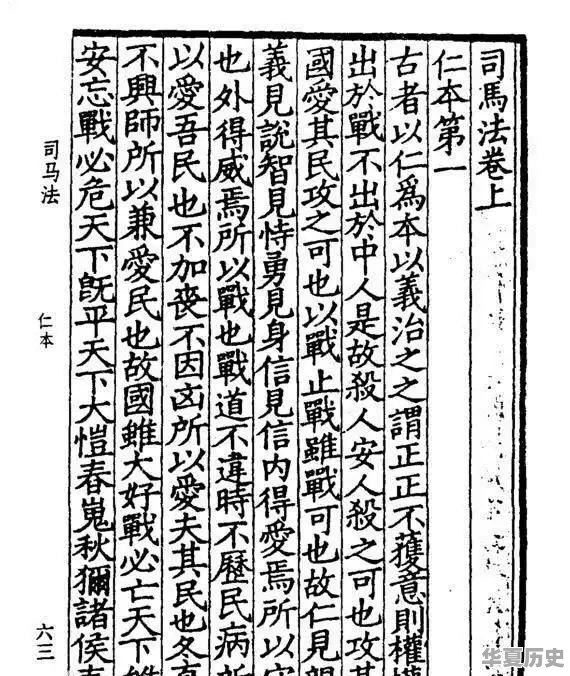 司馬法卷上
仁本第一
古者以仁爲本以義治之之謂正正不獲意則權權
出於戰不出於中人是故殺人安人殺之可也攻其
國愛其民攻之可也以戰止戰雖戰可也故仁見親
義見說智見恃勇見身信見信内得愛焉所以守
也外得威焉所以戰也戰道不違時不歷民病所
以愛吾民也不加喪不因凶所以愛夫其民也冬夏
不興師所以兼愛民也故國雖大好戰必亡天下雖
安忘戰必危天下旣平天下大愷春嵬秋獮諸侯春
司马法
仁本
六三
华夏历史